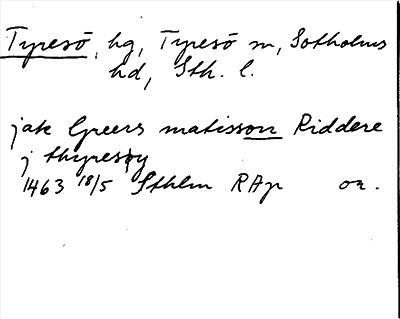 Tyresö, hg, Tyresö sn, Sotholms
hd, Sth. l.
jak Greers matisson Riddere
j thyresøy
1463 18/5 Sthlm RAp or.